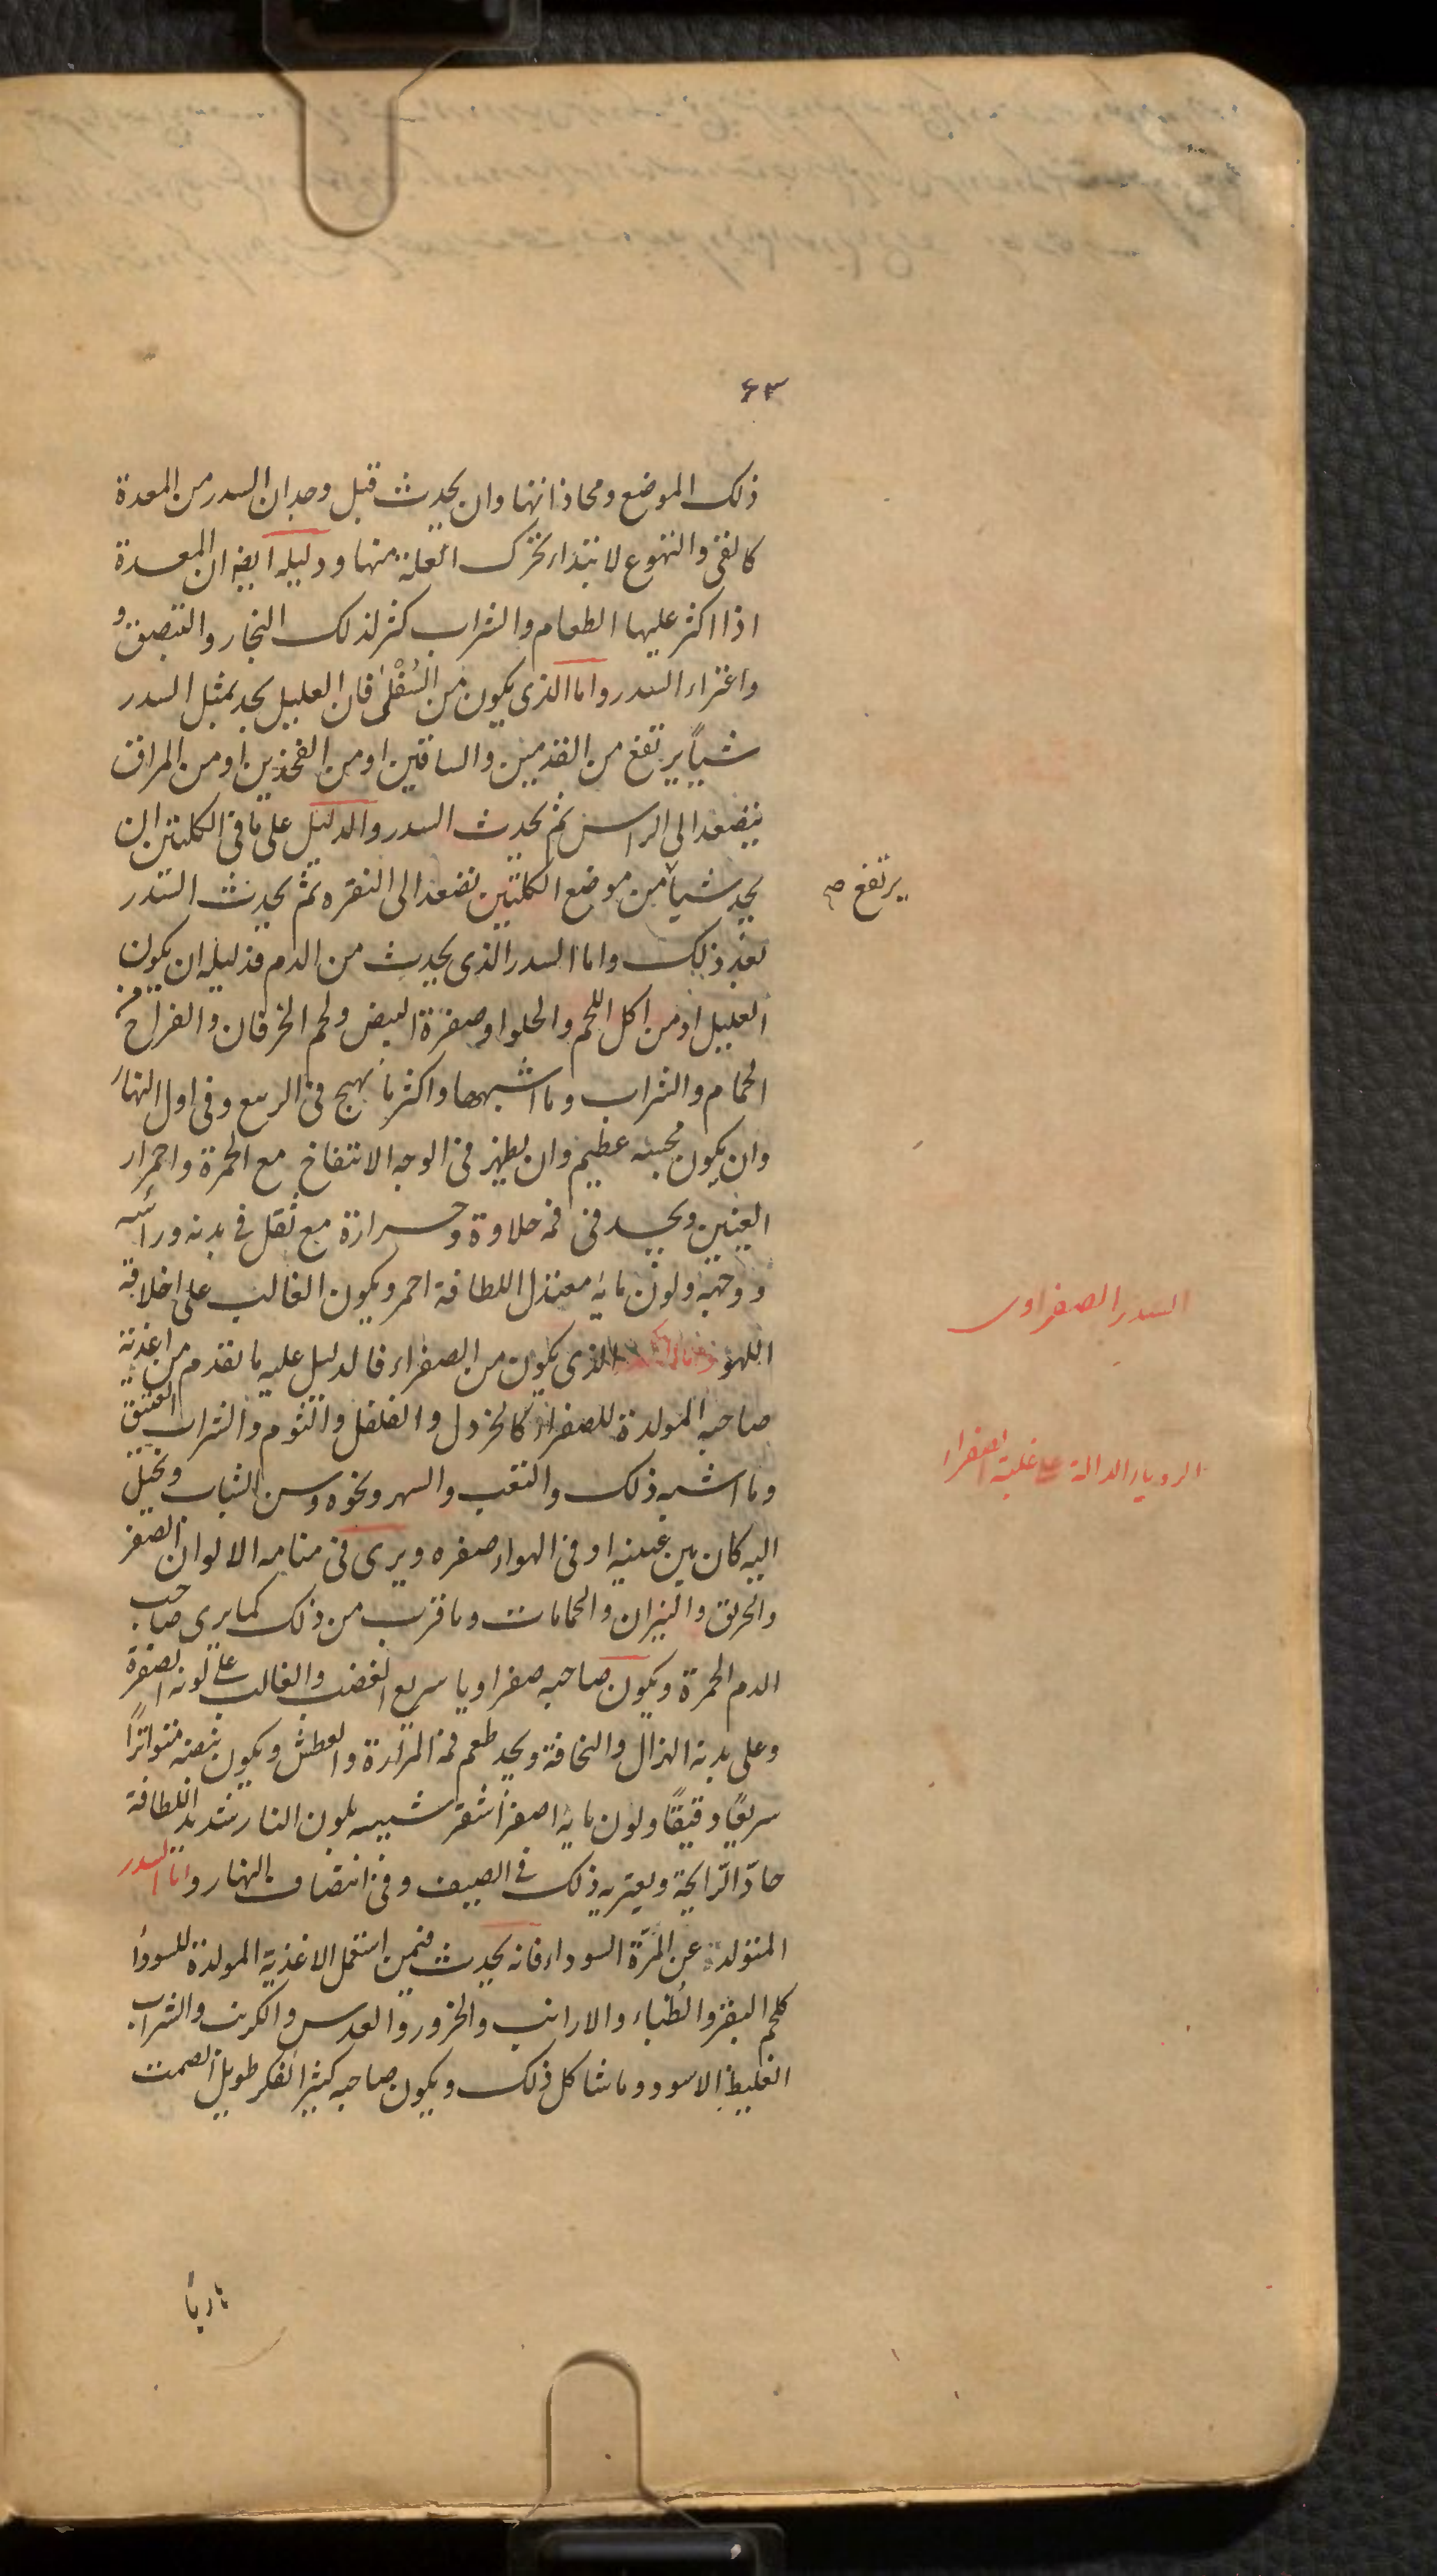 ٤٣
ذلك الموضع ومحاذاتها وان يحدث قبل وجدان السدر من المعدة
كالقئ والتهوع لابتداء تحرك العلة منها ودليله ايضا ان المعدة
اذا اكثر عليها الطعام والشراب كثر لذلك البخار والتبصق و
واعتراء السدر واما الذى يكون من السُفْلى فان العليل يجد بمثل السدر
شيأً يرتفع من القدمين والساقين او من الفخذين او من المراق
يتصعد الى الراس ثم يحدث السدر والدليل على ما فى الكليتين ان
يجد شيأ من موضع الكليتين تصعد الى النقره ثم يحدث السدر
يرتفع صح
بعد ذلك واما السدر الذى يحدث من الدم فدليله ان يكون
العليل ادمن اكل اللحم والحلوا وصفرة البيض ولحم الخرفان والفراخ و
الحمام والشراب وما اشبهها واكثر ما يهيج فى الربيع وفى اول النهار
وان يكون مجسه عظيم وان يظهر فى الوجه الانتفاخ مع الحمرة واحمرار
العينين ويجد فى فمه حلاوة وحرارة مع ثقل فى بدنه ورأسه
ووجهه ولون مائه معتدل اللطافة احمر ويكون الغالب على اخلاقه
السدر الصفراوى
اللهو الذى يكون من الصفراء فالدليل عليه ما تقدم من اغذية
صاحبه المولدة للصفراء كالخردل والفلفل والثوم والشراب العتيق
الرويا الدالة على غلبة الصفرا
وما اشبه ذلك والتعب والسهر ونحوه وسن الشباب ويخيل
اليه كان بين عينيه او فى الهواء صفره ويرى فى منامه الالوان الصفر
والحريق والنيران والحمامات وما قرب من ذلك كما يرى صاحب
الدم الحمرة ويكون صاحبه صفراويا سريع الغضب والغالب على لونه الصفرة
وعلى بدنه الهزال والنحافة ويجد طعم فمه المرارة والعطش ويكون نبضه متواترًا
سريعًا دقيقًا ولون مائه اصفر اشقر شبيه بلون النار شديد اللطافة
حادّ الرّايحة ويعتريه ذلك فى الصيف وفى انتصاف النهار واما السدر
المتولدة عن المرّة السوداء فانه يحدث فيمن استعمل الاغذية المولدة للسودا
كلحم البقر والظباء والارانب والجزور والعدس والكرنب والشراب
الغليظ الاسود وما شاكل ذلك ويكون صاحبه كثير الفكر طويل الصمت